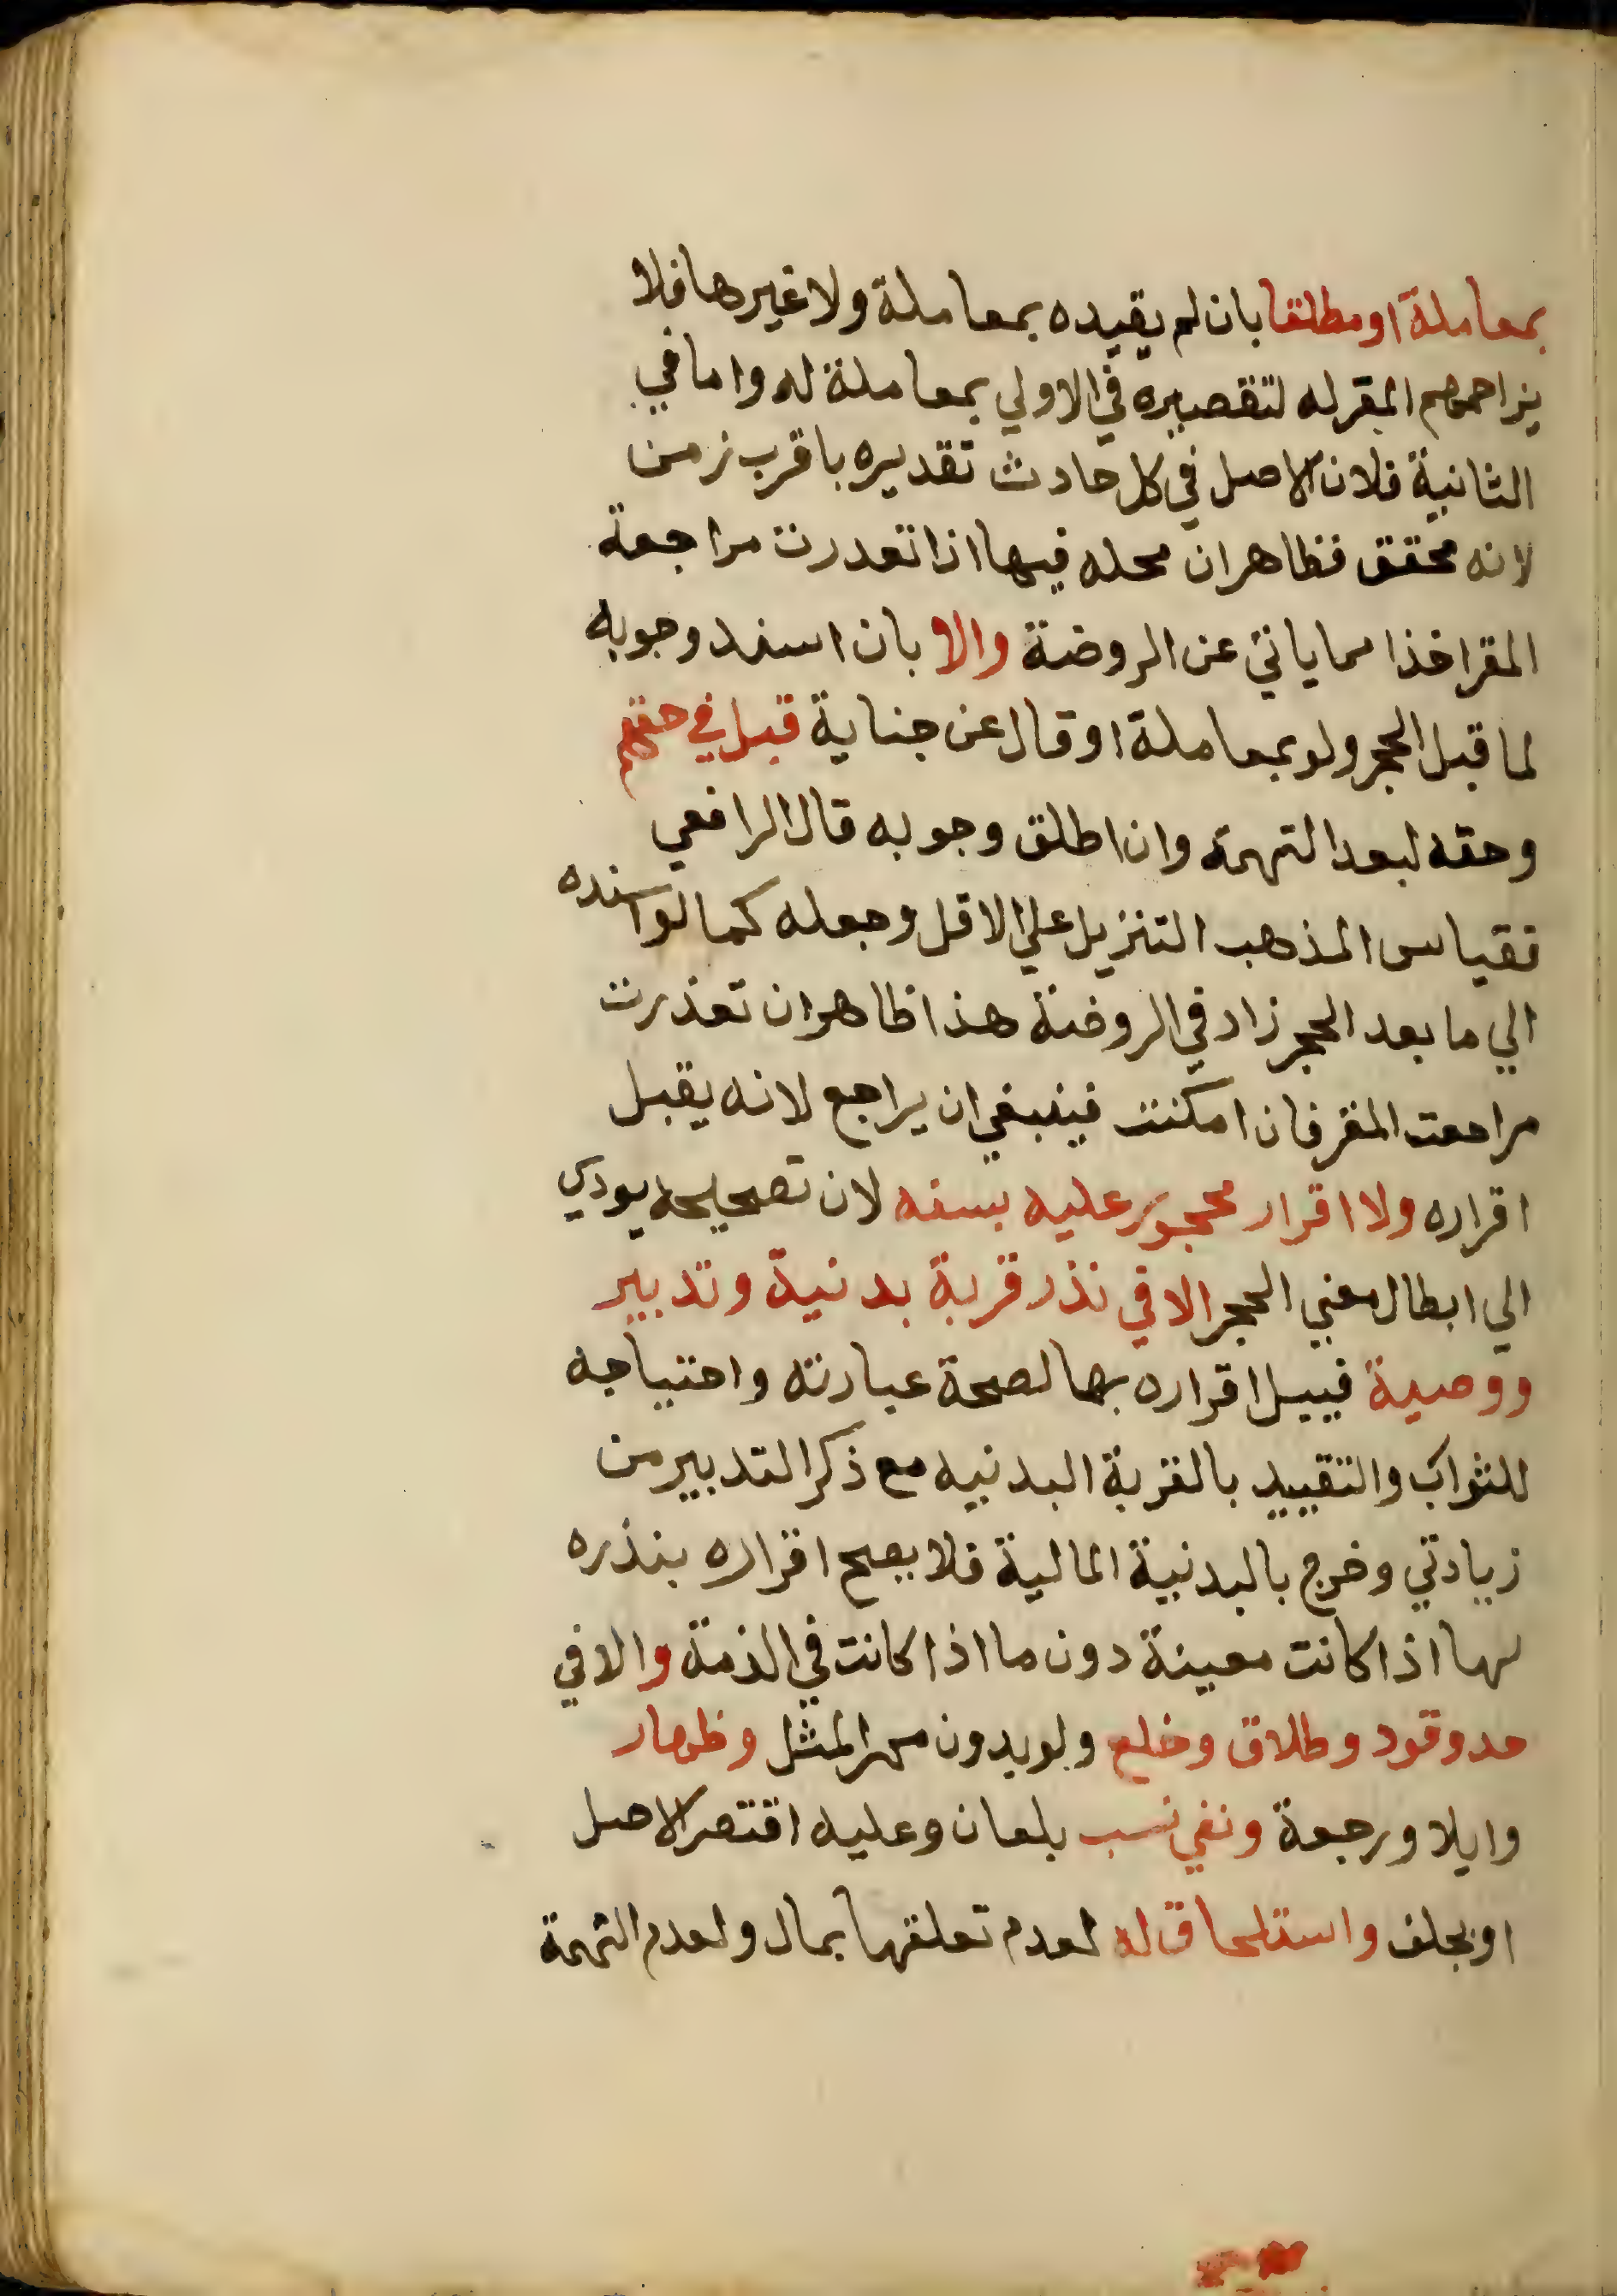 بمعاملة او مطلقا بان لم يقيده بمعاملة ولا غيرها فلا
يزاحمهم المقر له لتقصيره في الاولي بمعاملة له واما في
الثانية فلان الاصل في كل حادث تقديره باقرب زمن
لانه محقق فظاهر ان محله فيها اذا تعدرت مراجعة
المقر اخذا مما ياتي عن الروضة والا بان اسند وجوبه
لما قبل الحجر ولو بمعاملة او قال عن جناية قبل في حقهم
وحقه لبعد التهمة وان اطلق وجوبه قال الرافعي
فقياس المذهب التنزيل علي الاقل وجعله كما لو اسنده
الي ما بعد الحجر زاد في الروضة هذا ظاهر ان تعذرت
مراجعت المقر فان امكنت فينبغي ان يراجع لانه يقبل
اقراره ولا اقرار محجور عليه بسفه لان تصحيحه يودي
الي ابطال معني الحجر الا في نذر قربة بدنية وتدبير
ووصية فيبل اقراره بها لصحة عبارته واحتياجه
للثواب والتقييد بالقربة البدنيه مع ذكر التدبير من
زيادتي وخرج بالبدنية المالية فلا يصح اقراره بنذره
لها اذا كانت معينة دون ما اذا كانت في الذمة والا في
حد وقود وطلاق وخلع ولو بدون مهر المثل وظهار
وايلا ورجعة ونفي نسب بلعان وعليه اقتصر الاصل
او بحلف واستلحاق له لعدم تعلقها بمال ولعدم التهمة